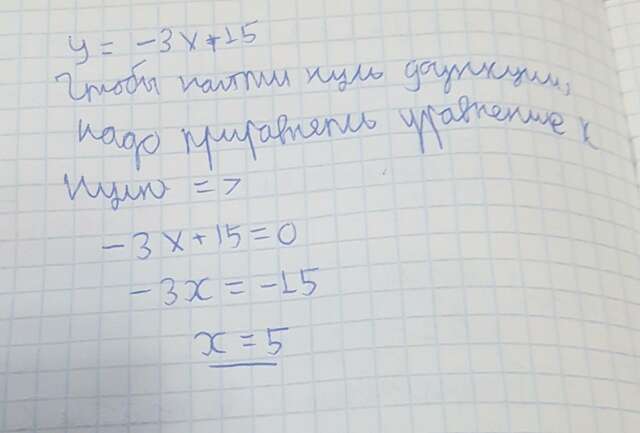 y = -3x+15
Чтобы найти нуль функции,
надо приравнять уравнение к
нулю =>
-3x+15=0
-3x = -15
x = 5